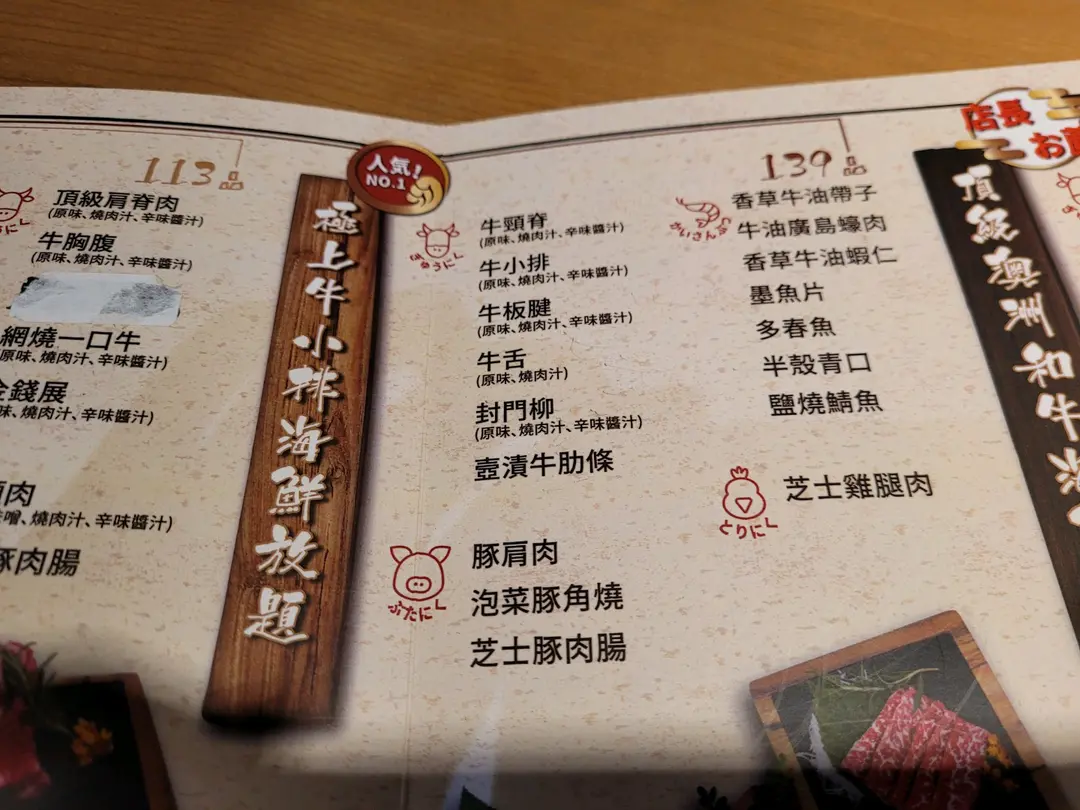 113品
頂級肩脊肉
(原味、燒肉汁、辛味醬汁)
牛胸腹
(原味、燒肉汁、辛味醬汁)
網燒一口牛
原味、燒肉汁、辛味醬汁)
金錢展
味、燒肉汁、辛味醬汁)
肉
噌、燒肉汁、辛味醬汁)
豚肉腸
人気!
NO.1
極上牛小排海鮮放題
139品
ぎゅうにく
牛頸脊
(原味、燒肉汁、辛味醬汁)
牛小排
(原味、燒肉汁、辛味醬汁)
牛板腱
(原味、燒肉汁、辛味醬汁)
牛舌
(原味、燒肉汁)
封門柳
(原味、燒肉汁、辛味醬汁)
壺漬牛肋條
ぶたにく
豚肩肉
泡菜豚角燒
芝士豚肉腸
かいさんぶつ
香草牛油帶子
牛油廣島蠔肉
香草牛油蝦仁
墨魚片
多春魚
半殼青口
鹽燒鯖魚
とりにく
芝士雞腿肉
店長
お
頂級澳洲和牛海